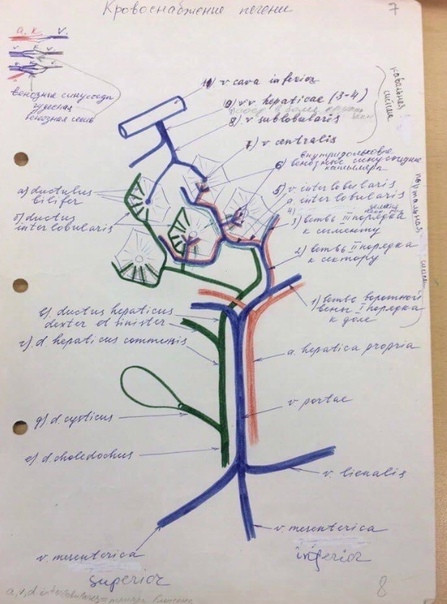 Кровоснабжение печени
7
а. к. v.
венозные синусоиды
чудесная
венозная сеть
10) v cava inferior
9) v v hepaticae (3-4)
8) v sublobularis
7) v centralis
6) внутридольковые
венозные синусоидные
капилляры
5) v interlobularis
a interlobularis
4)
3) ветвь III порядка
к сегменту
2) ветвь II порядка
к сектору
1) ветвь воротной
вены I порядка
к доле
кавальная
система
портальная
система
а) ductulus
bilifer
б) ductus
interlobularis
в) ductus hepaticus
dexter et sinister
г) d hepaticus communis
a. hepatica propria
v portae
д) d cysticus
е) d choledochus
v. lienalis
v. mesenterica
inferior
v. mesenterica
superior
8